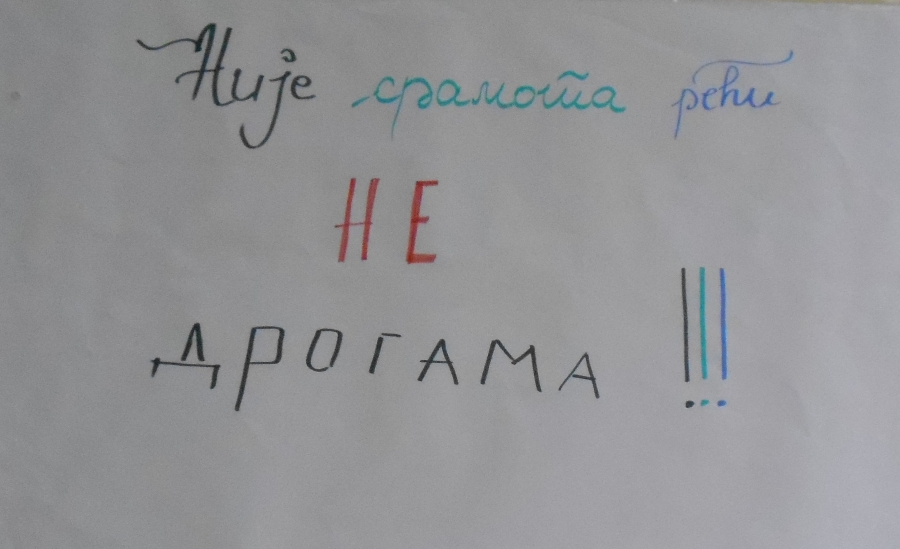 Није срамота рећи
НЕ
ДРОГАМА !!!